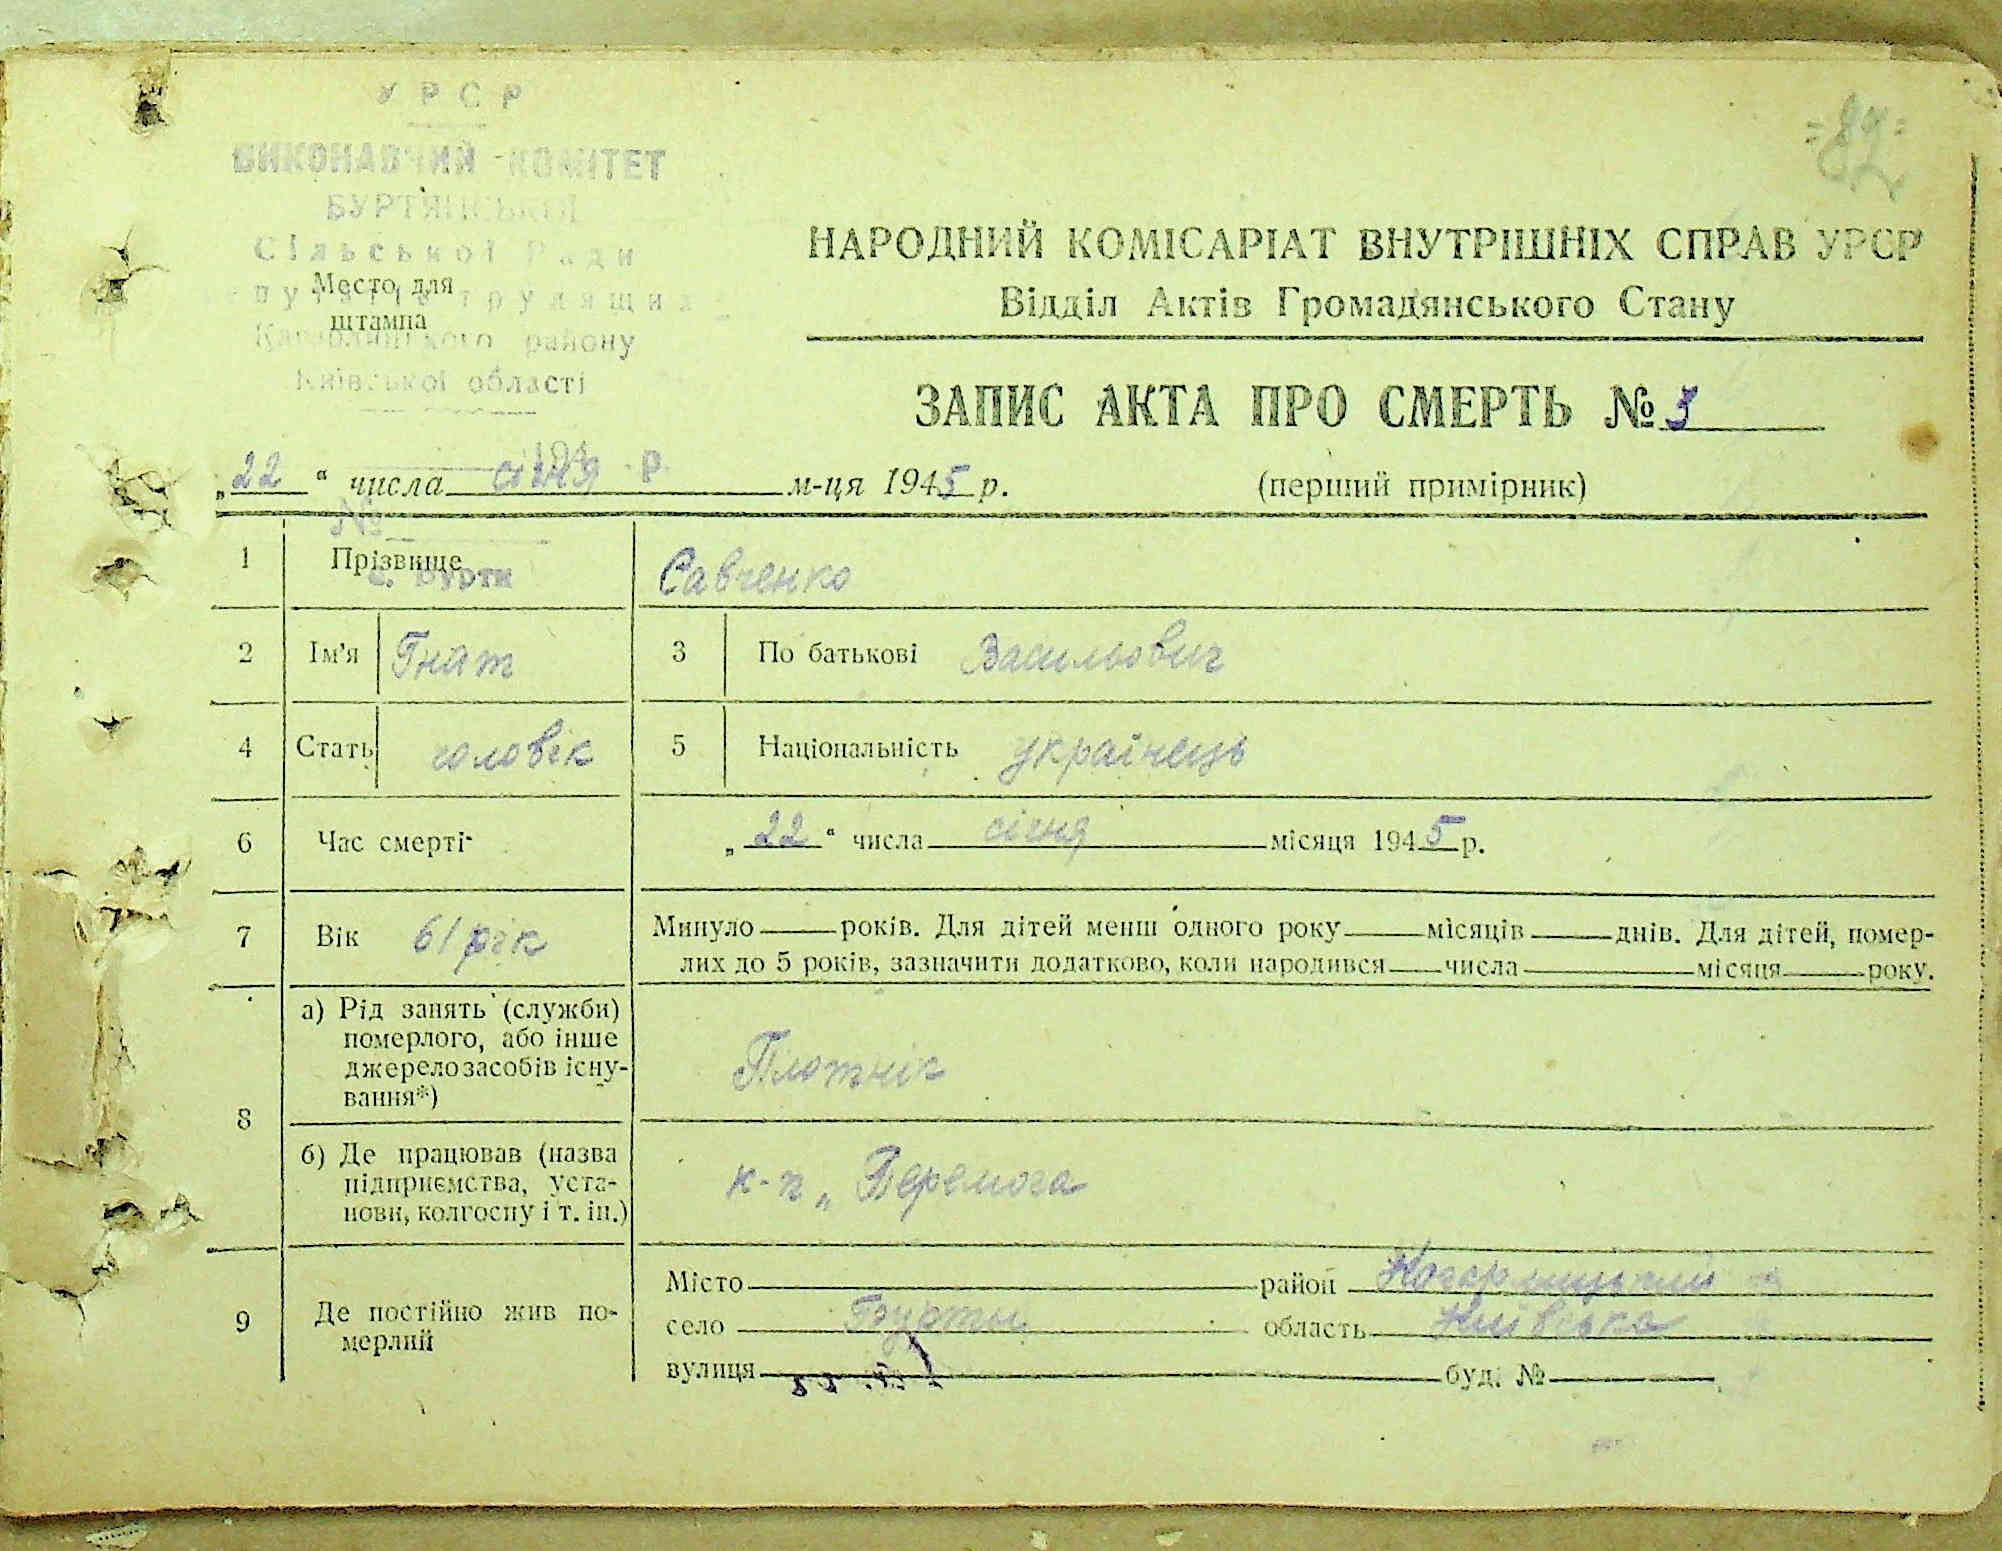 =82=
У Р С Р
ВИКОНАВЧИЙ КОМІТЕТ
БУРТЯНСЬКОЇ
Сільської Ради
Место для
штампа
Кагарлицького району
Київської області
194 р.
№
с. Бурти
НАРОДНИЙ КОМІСАРІАТ ВНУТРІШНІХ СПРАВ УРСР
Відділ Актів Громадянського Стану
ЗАПИС АКТА ПРО СМЕРТЬ № 3
„22“ числа січня м-ця 1945 р. (перший примірник)
1 Прізвище Савченко
2 Ім'я Гнат 3 По батькові Васильович
4 Стать чоловік 5 Національність українець
6 Час смерті „22“ числа січня місяця 1945 р.
7 Вік 61 рік Минуло років. Для дітей менш одного року місяців днів. Для дітей, помер-
лих до 5 років, зазначити додатково, коли народився числа місяця року.
8 а) Рід занять (служби)
померлого, або інше
джерело засобів існу-
вання*)
Плотнік
б) Де працював (назва
підприємства, уста-
нови, колгоспу і т. ін.)
к-п „Перемога
9 Де постійно жив по-
мерлий
Місто район Кагарлицький
село Бурти область Київська
вулиця буд. №